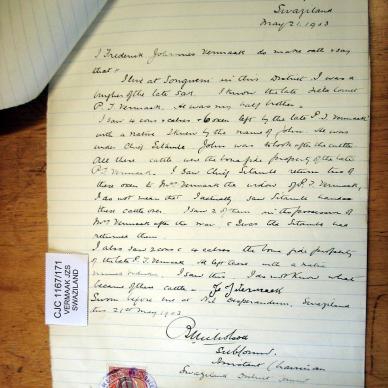 Swaziland
May 21. 1903
I Frederick Johannes Vermaak do make oath & say
that :-
I live at Songuem in this District I was a
burgher of the late SAR. I know the late
P. J. Vermaak. He was my half brother.
I saw 4 cows & calves & 6 oxen left by the late P. J. Vermaak
with a native I knew by the name of John. He was
under Chief Silambe John was to look after the cattle.
All these cattle were the bona fide property of the late
P. J. Vermaak. I saw Chief Silambe return two of
these oxen to Mrs Vermaak the widow of P. J. Vermaak,
I do not mean that I actually saw Silambe handing
these cattle over. I saw 2 of them in the possession of
Mrs Vermaak after the war & I was Silambe had
returned them.
I also saw 2 cows & 4 calves the bona fide property
of the late P. J. Vermaak. He left these with a native
named I saw this. I do not know what
became of these cattle. F J Vermaak
Sworn before me at Singuem, Swaziland
this 21st May 1903
B Nicholson
Assistant Chairman
Swaziland District
CJC 1167/171
VERMAAK JZS
SWAZILAND